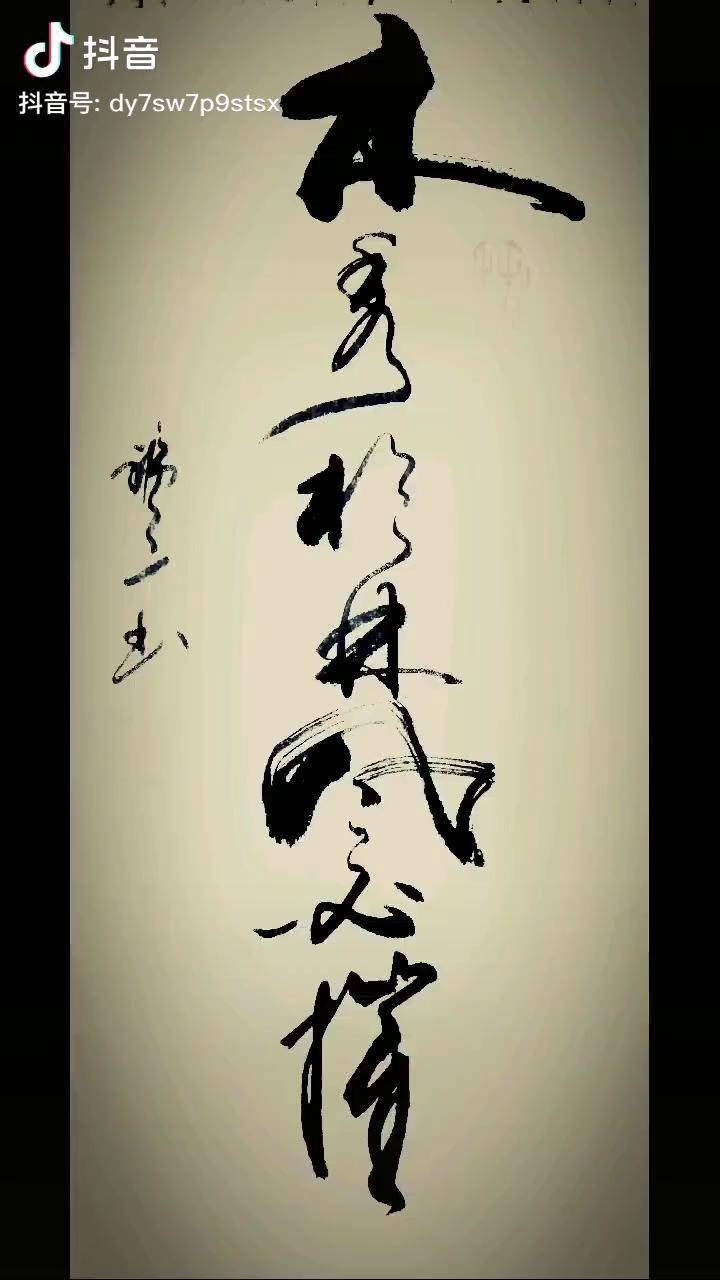 抖音
抖音号: dy7sw7p9stsx
木秀於林风必摧